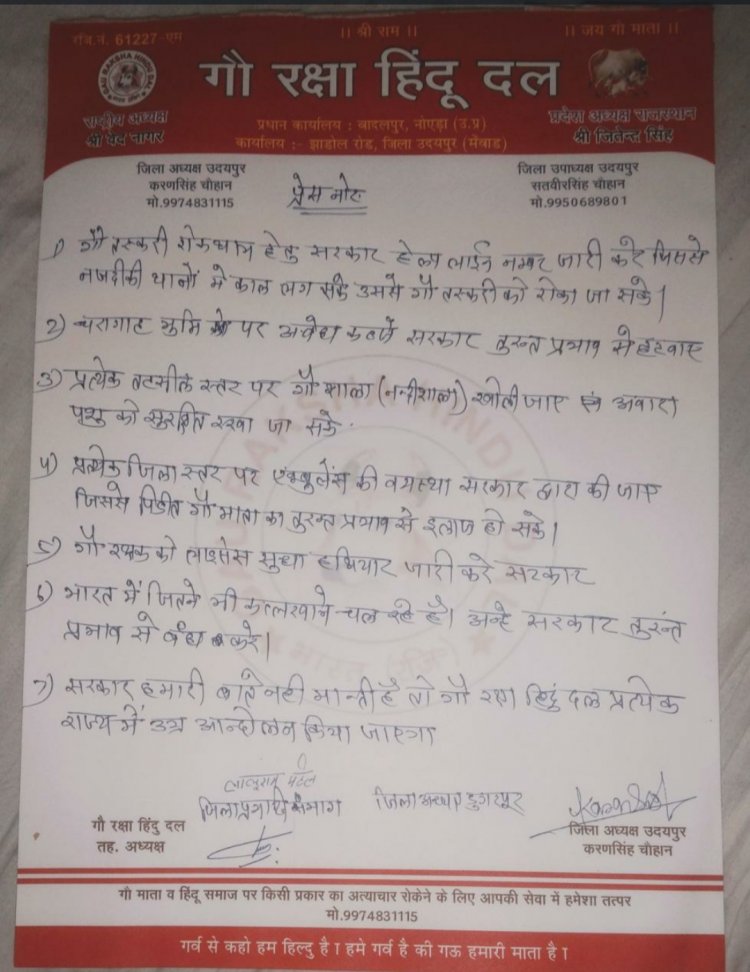 रजि.नं. 61227 -एम
।। श्री राम ।।
।। जय गौ माता ।।
गौ रक्षा हिंदू दल
राष्ट्रीय अध्यक्ष
श्री वेद नागर
प्रधान कार्यालय : बादलपुर, नोएड़ा (उ.प्र)
कार्यालय :- झाडोल रोड, जिला उदयपुर (मेंवाड)
प्रदेश अध्यक्ष राजस्थान
श्री जितेन्द्र सिंह
जिला अध्यक्ष उदयपुर
करणसिंह चौहान
मो.9974831115
प्रेस नोट
जिला उपाध्यक्ष उदयपुर
सतवीरसिंह चौहान
मो.9950689801
1) गौ तस्करी रोकथाम हेतु सरकार हेल्प लाईन नम्बर जारी करे जिससे
नजदीकी थानों मे काल लग सके उससे गौ तस्करी को रोका जा सके।
2) चरागाह भूमि पर अवैध कब्जे सरकार तुरन्त प्रभाव से हटवाए
3) प्रत्येक तहसील स्तर पर गौ शाला (नन्दीशाला) खोली जाए एवं अवारा
पशु को सुरक्षित रखा जा सके.
4) प्रत्येक जिला स्तर पर एम्बुलेंस की व्यवस्था सरकार द्वारा की जाए
जिससे पिडीत गौ माता का तुरन्त प्रभाव से इलाज हो सके।
5) गौ रक्षक को लाइसेंस सुधा हथियार जारी करे सरकार
6) भारत में जितने भी कत्लखाने चल रहे है। उन्हे सरकार तुरंत
प्रभाव से बंध करे।
7) सरकार हमारी बाते नही मानती है तो गौ रक्षा हिंदु दल प्रत्येक
राज्य में उग्र आन्दोलन किया जाएगा
लालुराम पटेल
जिला अध्यक्ष डुगरपुर
गौ रक्षा हिंदु दल
तह. अध्यक्ष
जिला अध्यक्ष उदयपुर
करणसिंह चौहान
गौ माता व हिंदू समाज पर किसी प्रकार का अत्याचार रोकेने के लिए आपकी सेवा में हमेशा तत्पर
मो.9974831115
गर्व से कहो हम हिल्दु है। हमे गर्व है की गऊ हमारी माता है।